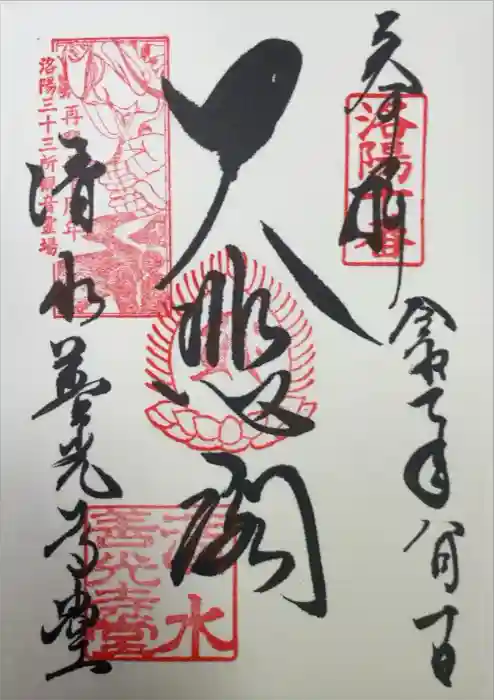 奉拝
洛陽十番
令和 年八月十日
大悲閣
洛陽三十三所観音霊場
再 周年
清水善光寺堂
清水
善光寺堂